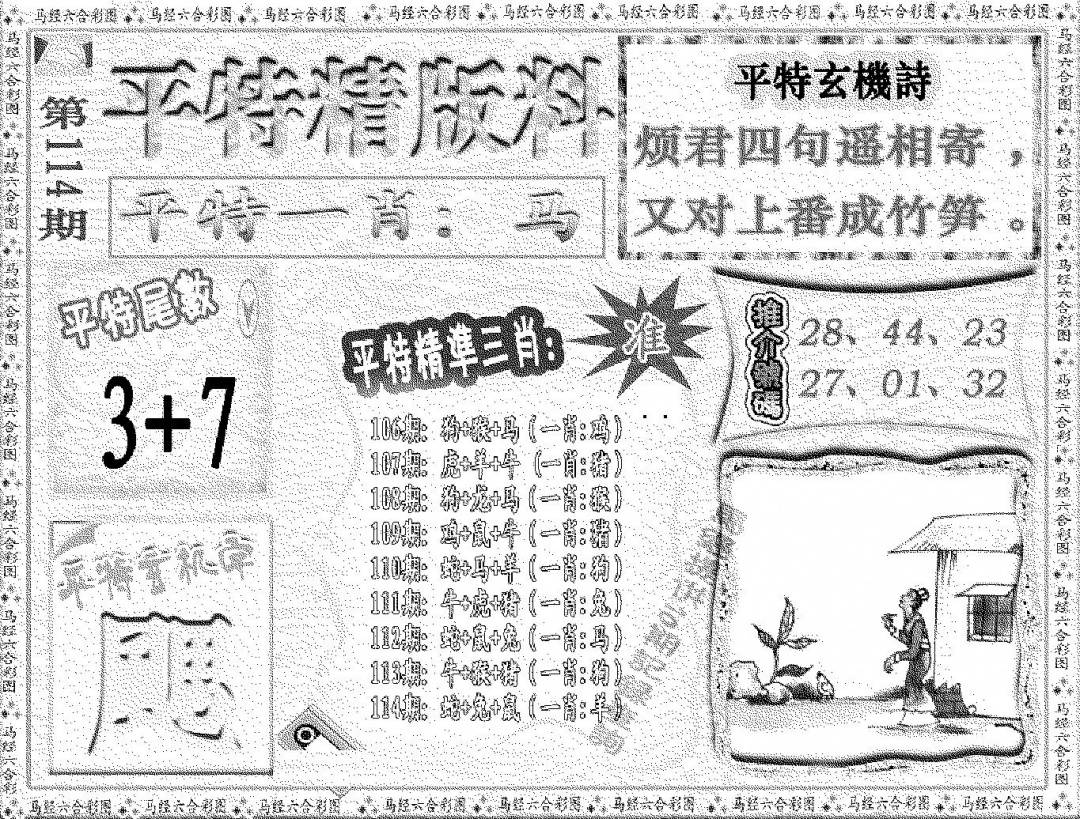 马经六合彩图 马经六合彩图 马经六合彩图 马经六合彩图 马经六合彩图 马经六合彩图 马经六合彩图 马经六合彩图 马经六合彩图
第114期
平特精版料
平特一肖：马
平特玄機詩
烦君四句遥相寄，
又对上番成竹笋。
平特尾数
3+7
平特精準三肖:
准
推介號碼
28、44、23
27、01、32
106期: 狗+猴+马(一肖:鸡)
107期: 虎+羊+牛(一肖:猪)
108期: 狗+龙+马(一肖:猴)
109期: 鸡+鼠+牛(一肖:猪)
110期: 蛇+马+羊(一肖:狗)
111期: 牛+虎+猪(一肖:兔)
112期: 蛇+鼠+兔(一肖:马)
113期: 牛+猴+猪(一肖:狗)
114期: 蛇+兔+鼠(一肖:羊)
平特玄机字
马经六合彩图 马经六合彩图 马经六合彩图 马经六合彩图 马经六合彩图 马经六合彩图 马经六合彩图 马经六合彩图 马经六合彩图